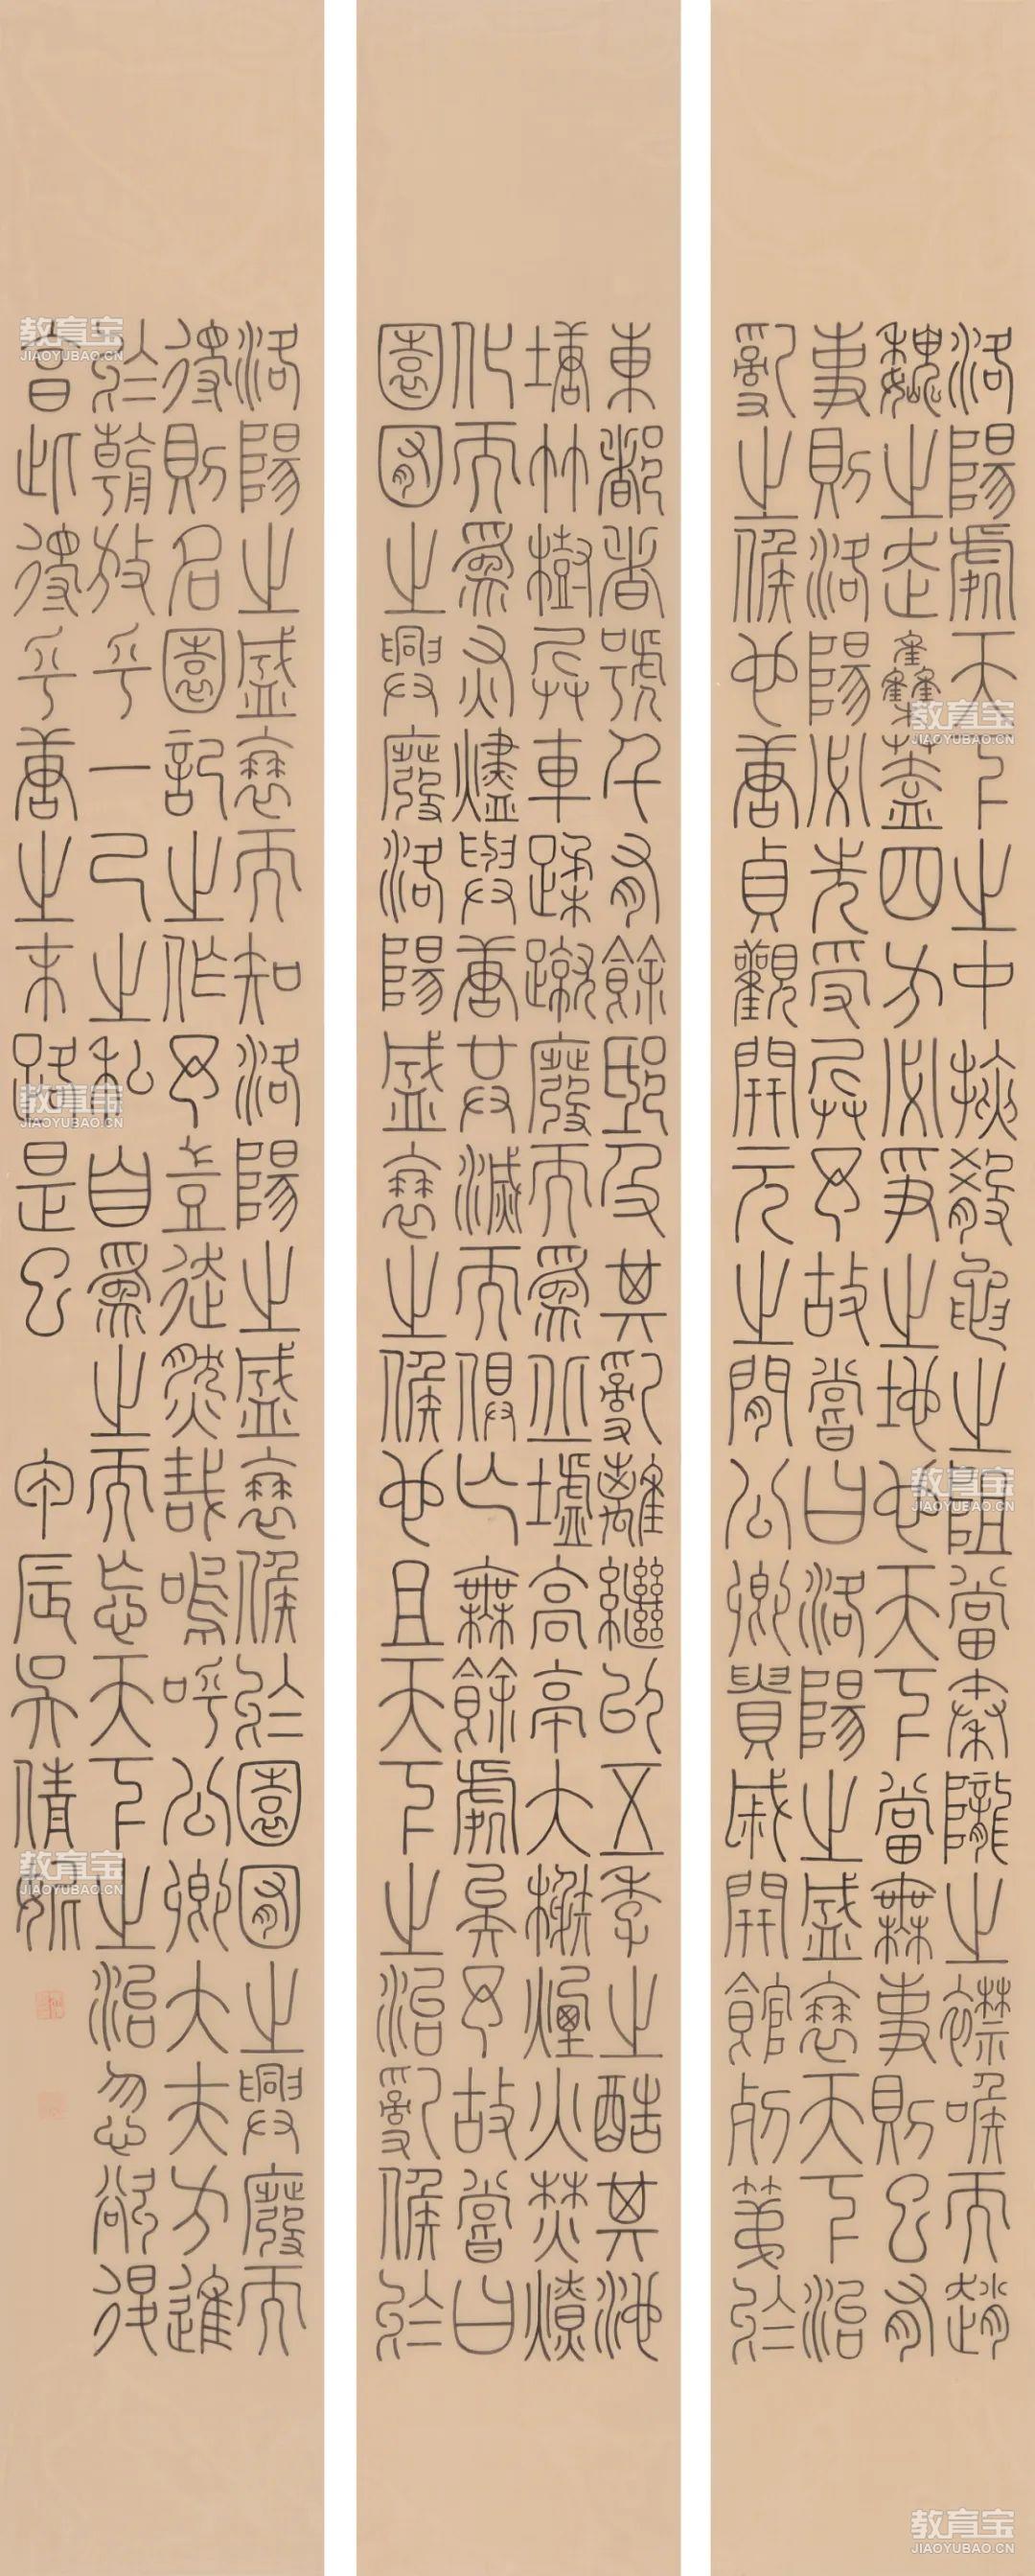 洛陽處天下之中挾殽黽之阻當秦隴之襟喉而趙
魏之走集蓋四方必爭之地也天下當無事則已有
事則洛陽必先受兵予故嘗曰洛陽之盛衰天下治
亂之候也唐貞觀開元之間公卿貴戚開館列第於
東都者號千有餘邸及其亂離繼以五季之酷其池
塘竹樹兵車蹂蹴廢而為丘墟高亭大榭煙火焚燎
化而為灰燼與唐共滅而俱亡無餘處矣予故嘗曰
園囿之興廢洛陽盛衰之候也且天下之治亂候於
洛陽之盛衰而知洛陽之盛衰候於園囿之興廢而
得則名園記之作予豈徒然哉嗚呼公卿大夫方進
於朝放乎一己之私自為之而忘天下之治忽欲退
享此得乎唐之末路是已 甲辰吳倩
教育宝
JIAOYUBAO.CN
教育宝
JIAOYUBAO.CN
教育宝
JIAOYUBAO.CN
教育宝
JIAOYUBAO.CN
教育宝
JIAOYUBAO.CN
教育宝
JIAOYUBAO.CN